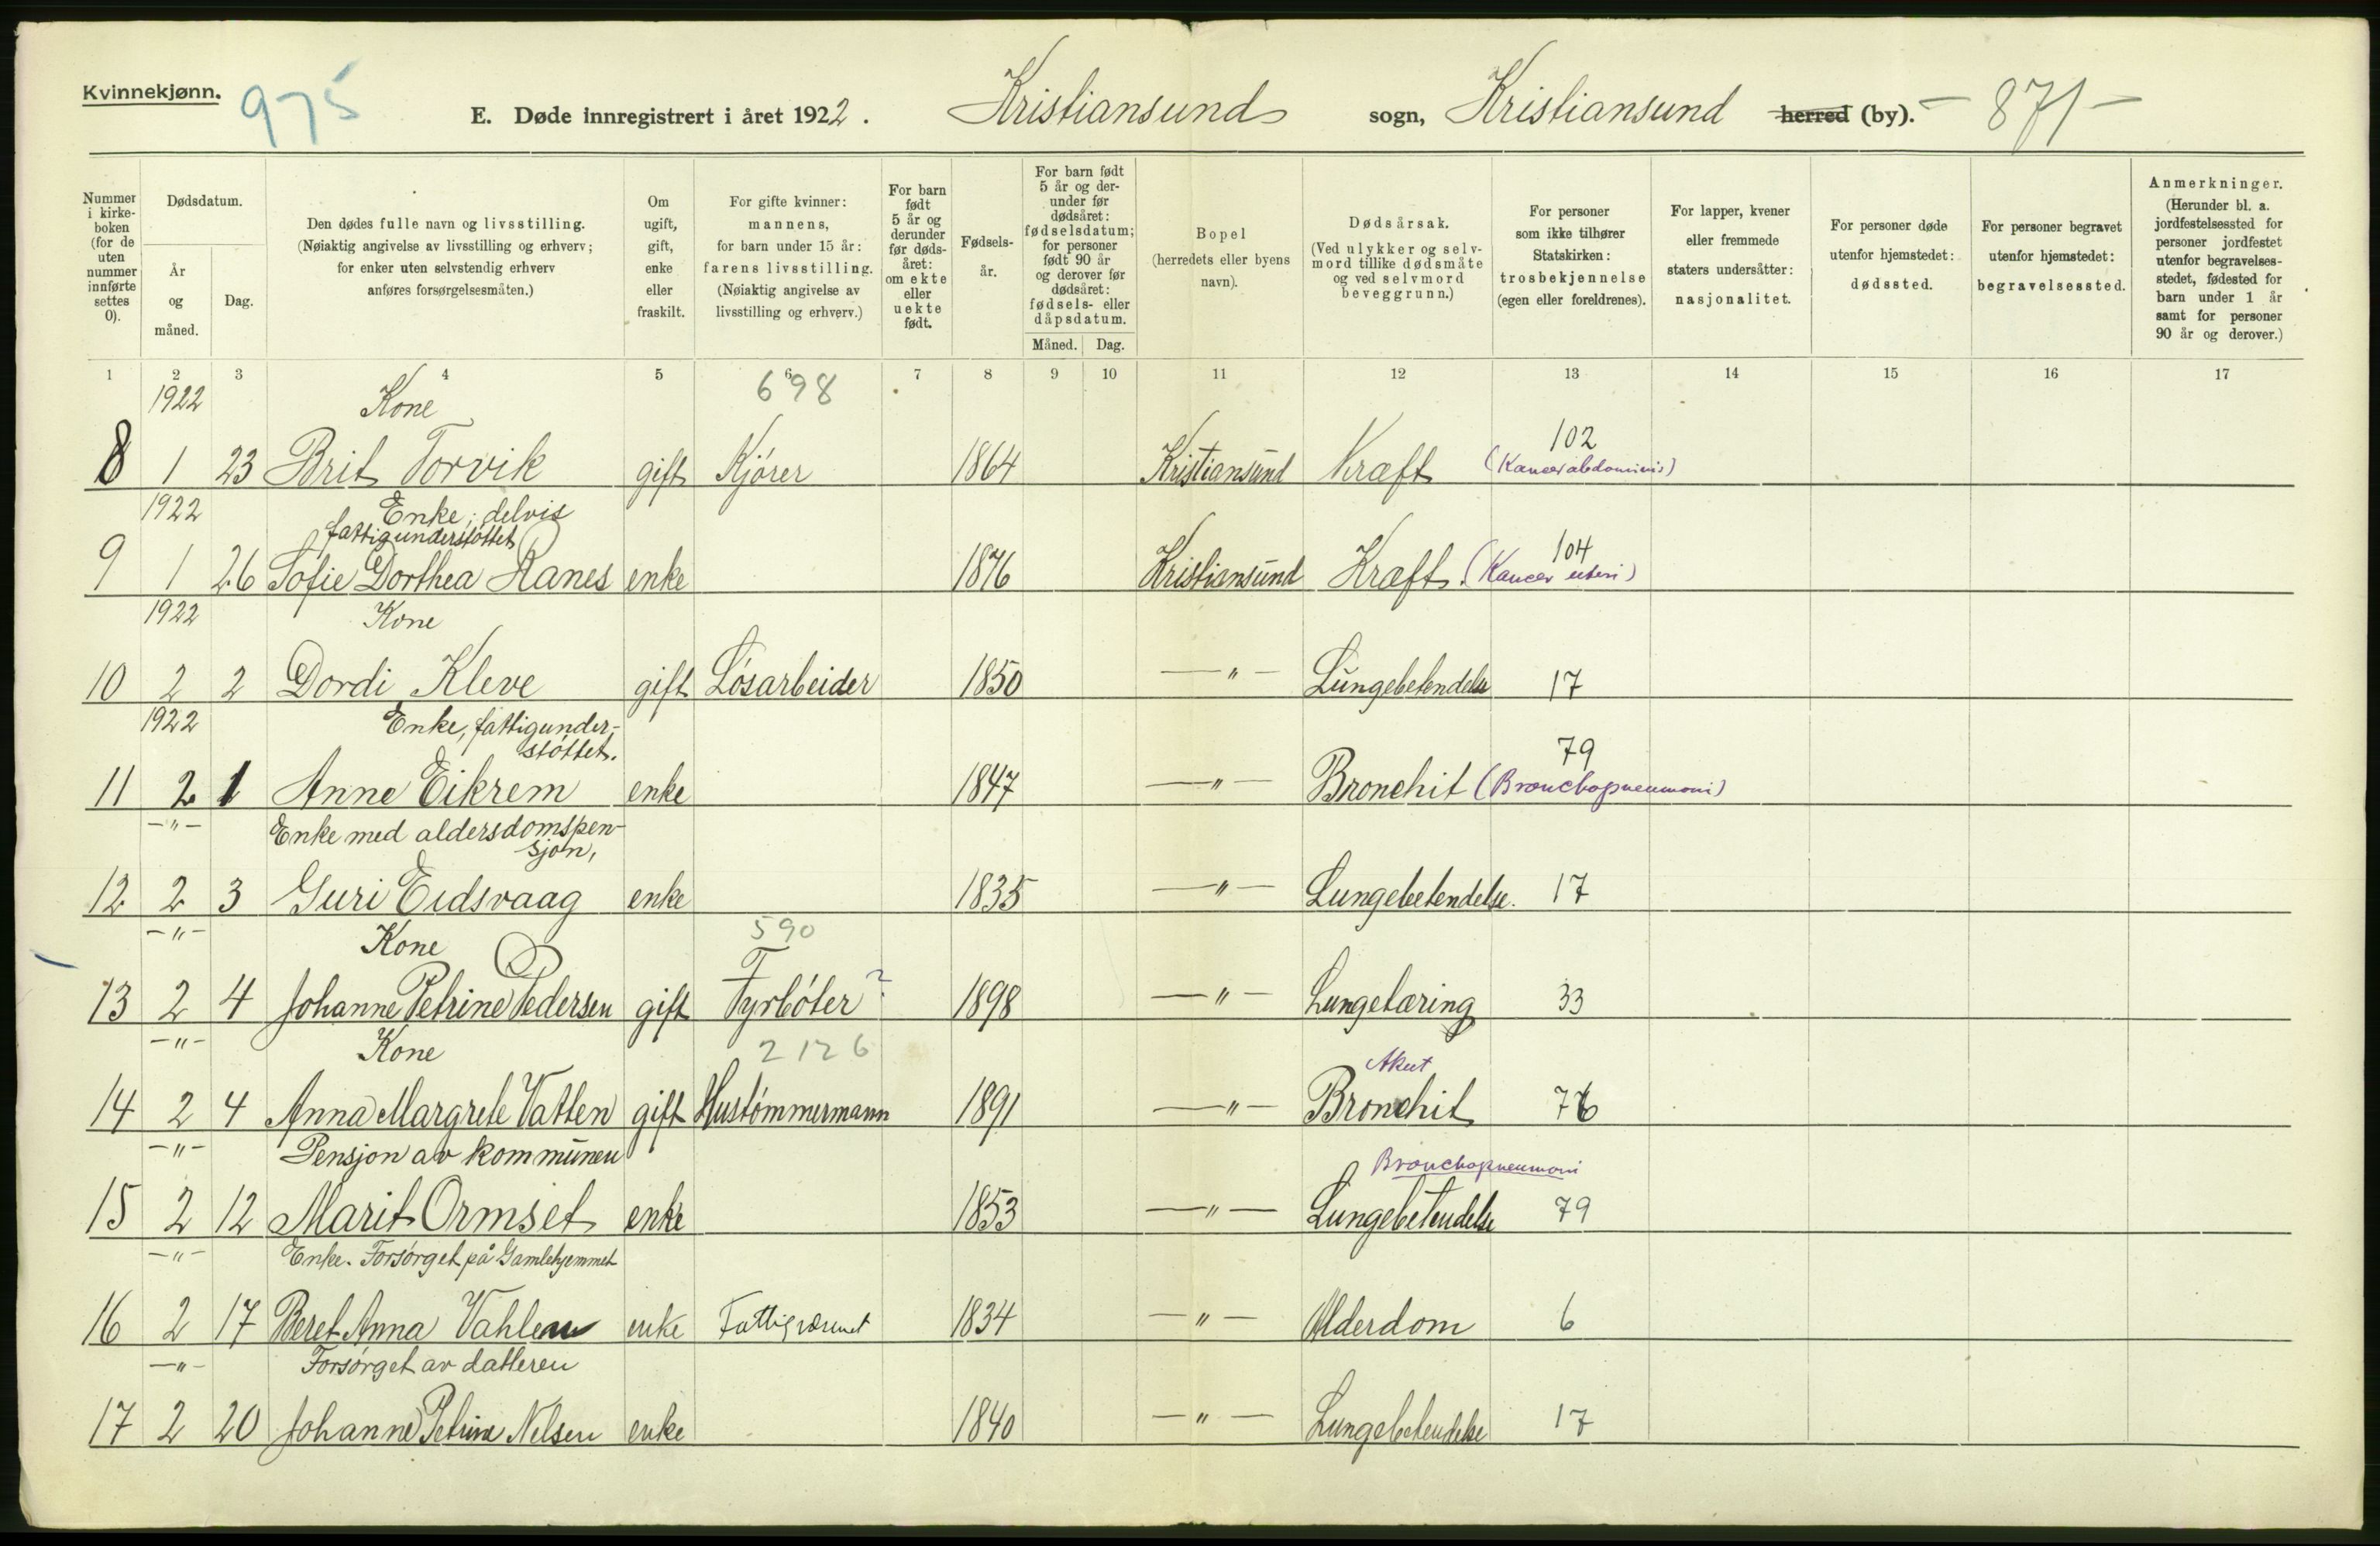 Kvinnekjønn. 975
E. Døde innregistrert i året 1922. Kristiansund sogn, Kristiansund herred (by). - 871 -
Nummer i kirkeboken (for de uten nummer innførte settes 0).
Dødsdatum.
År og måned.
Dag.
Den dødes fulle navn og livsstilling.
(Nøiaktig angivelse av livsstilling og erhverv;
for enker uten selvstendig erhverv
anføres forsørgelsesmåten.)
Om ugift, gift, enke eller fraskilt.
For gifte kvinner:
mannens,
for barn under 15 år:
farens livsstilling.
(Nøiaktig angivelse av
livsstilling og erhverv.)
For barn født 5 år og derunder før dødsåret: om ekte eller uekte født.
Fødselsår.
For barn født 5 år og derunder før dødsåret: fødselsdatum; for personer født 90 år og derover før dødsåret: fødsels- eller dåpsdatum.
Måned. Dag.
Bopel
(herredets eller byens
navn).
Dødsårsak.
(Ved ulykker og selvmord tillike dødsmåte og ved selvmord beveggrunn.)
For personer
som ikke tilhører
Statskirken:
trosbekjennelse
(egen eller foreldrenes).
For lapper, kvener
eller fremmede
staters undersåtter:
nasjonalitet.
For personer døde
utenfor hjemstedet:
dødssted.
For personer begravet
utenfor hjemstedet:
begravelsessted.
Anmerkninger.
(Herunder bl. a.
jordfestelsessted for
personer jordfestet
utenfor begravelses-
stedet, fødested for
barn under 1 år
samt for personer
90 år og derover.)
1 2 3 4 5 6 7 8 9 10 11 12 13 14 15 16 17
1922 Kone 698
102
8 1 23 Brit Torvik gift Kjører 1864 Kristiansund Kræft (Kancer abdominis)
1922 Enke; delvis
fattigunderstøttet
104
9 1 26 Sofie Dorthea Ranes enke 1876 Kristiansund Kræft. (Kancer uteri)
1922 Kone
10 2 2 Dordi Kleve gift Løsarbeider 1850 -"- Lungebetendelse 17
1922 Enke, fattigunder-
støttet.
79
11 2 1 Anne Eikrem enke 1847 -"- Bronchit (Bronchopneumoni)
-"- Enke med aldersdomspen-
sjon,
12 2 3 Guri Eidsvaag enke 1835 -"- Lungebetendelse. 17
-"- Kone 590
13 2 4 Johanne Petrine Pedersen gift Fyrbøter ? 1898 -"- Lungetæring 33
-"- Kone 2126
Akut
14 2 4 Anna Margrete Vatten gift Hustømmermann 1891 -"- Bronchit 76
-"- Pensjon av kommunen
Bronchopneumoni
15 2 12 Marit Ormset enke 1853 -"- Lungebetendelse 79
-"- Enke. Forsørget på Gamlehjemmet
16 2 17 Beret Anna Vahlen enke 1834 -"- Alderdom 6
-"- Forsørget av datteren
17 2 20 Johanne Petrine Nelsen enke 1840 -"- Lungebetendelse 17